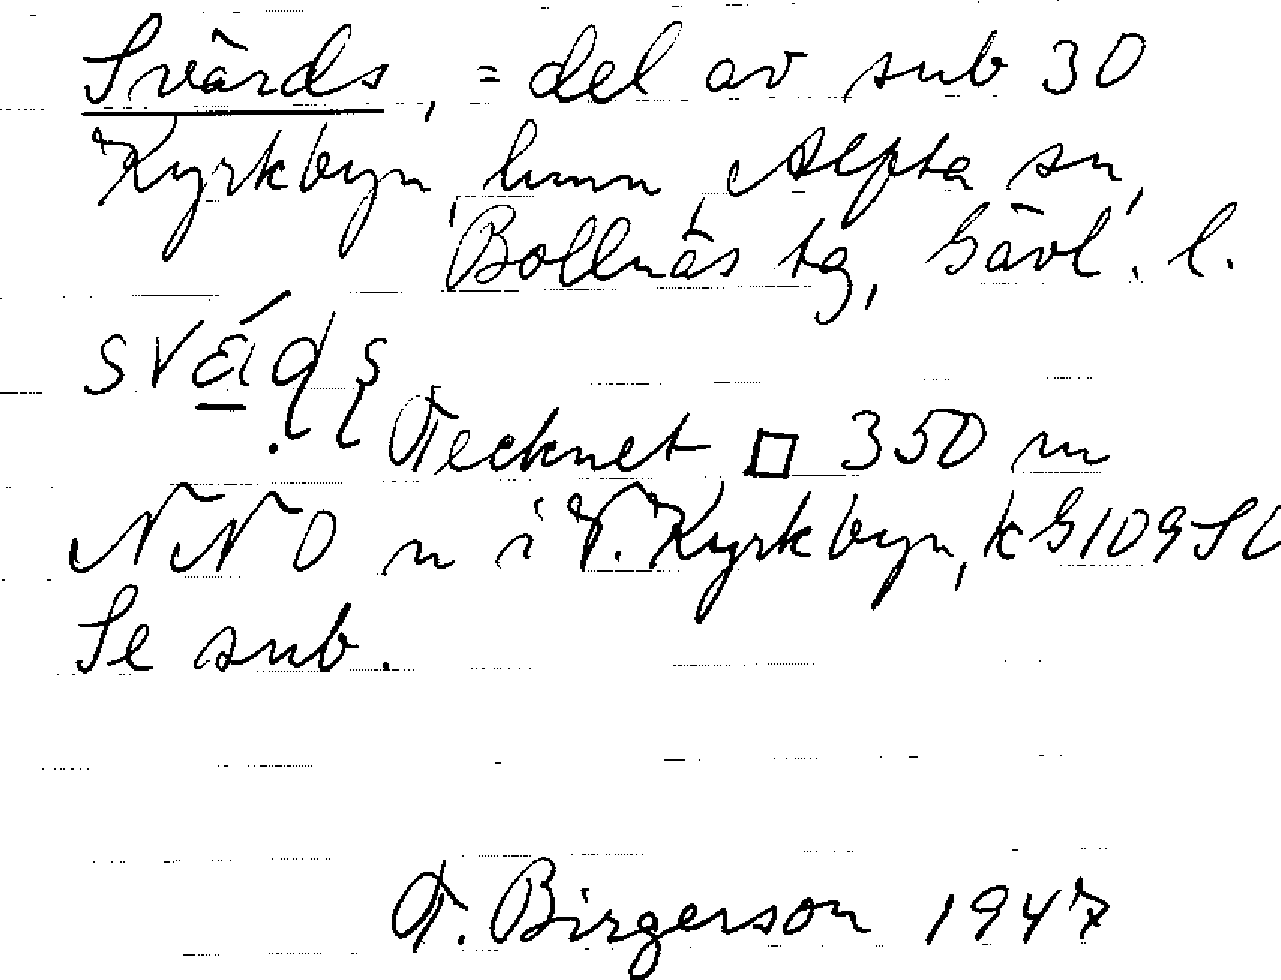 Svärds, = del av sub 30
Kyrkbyn, hmn, Alfta sn,
Bollnäs tg, Gävl. l.
Tecknet □ 350 m
NNO n i V. Kyrkbyn, k G109SV
Se sub.
T. Birgerson 1947